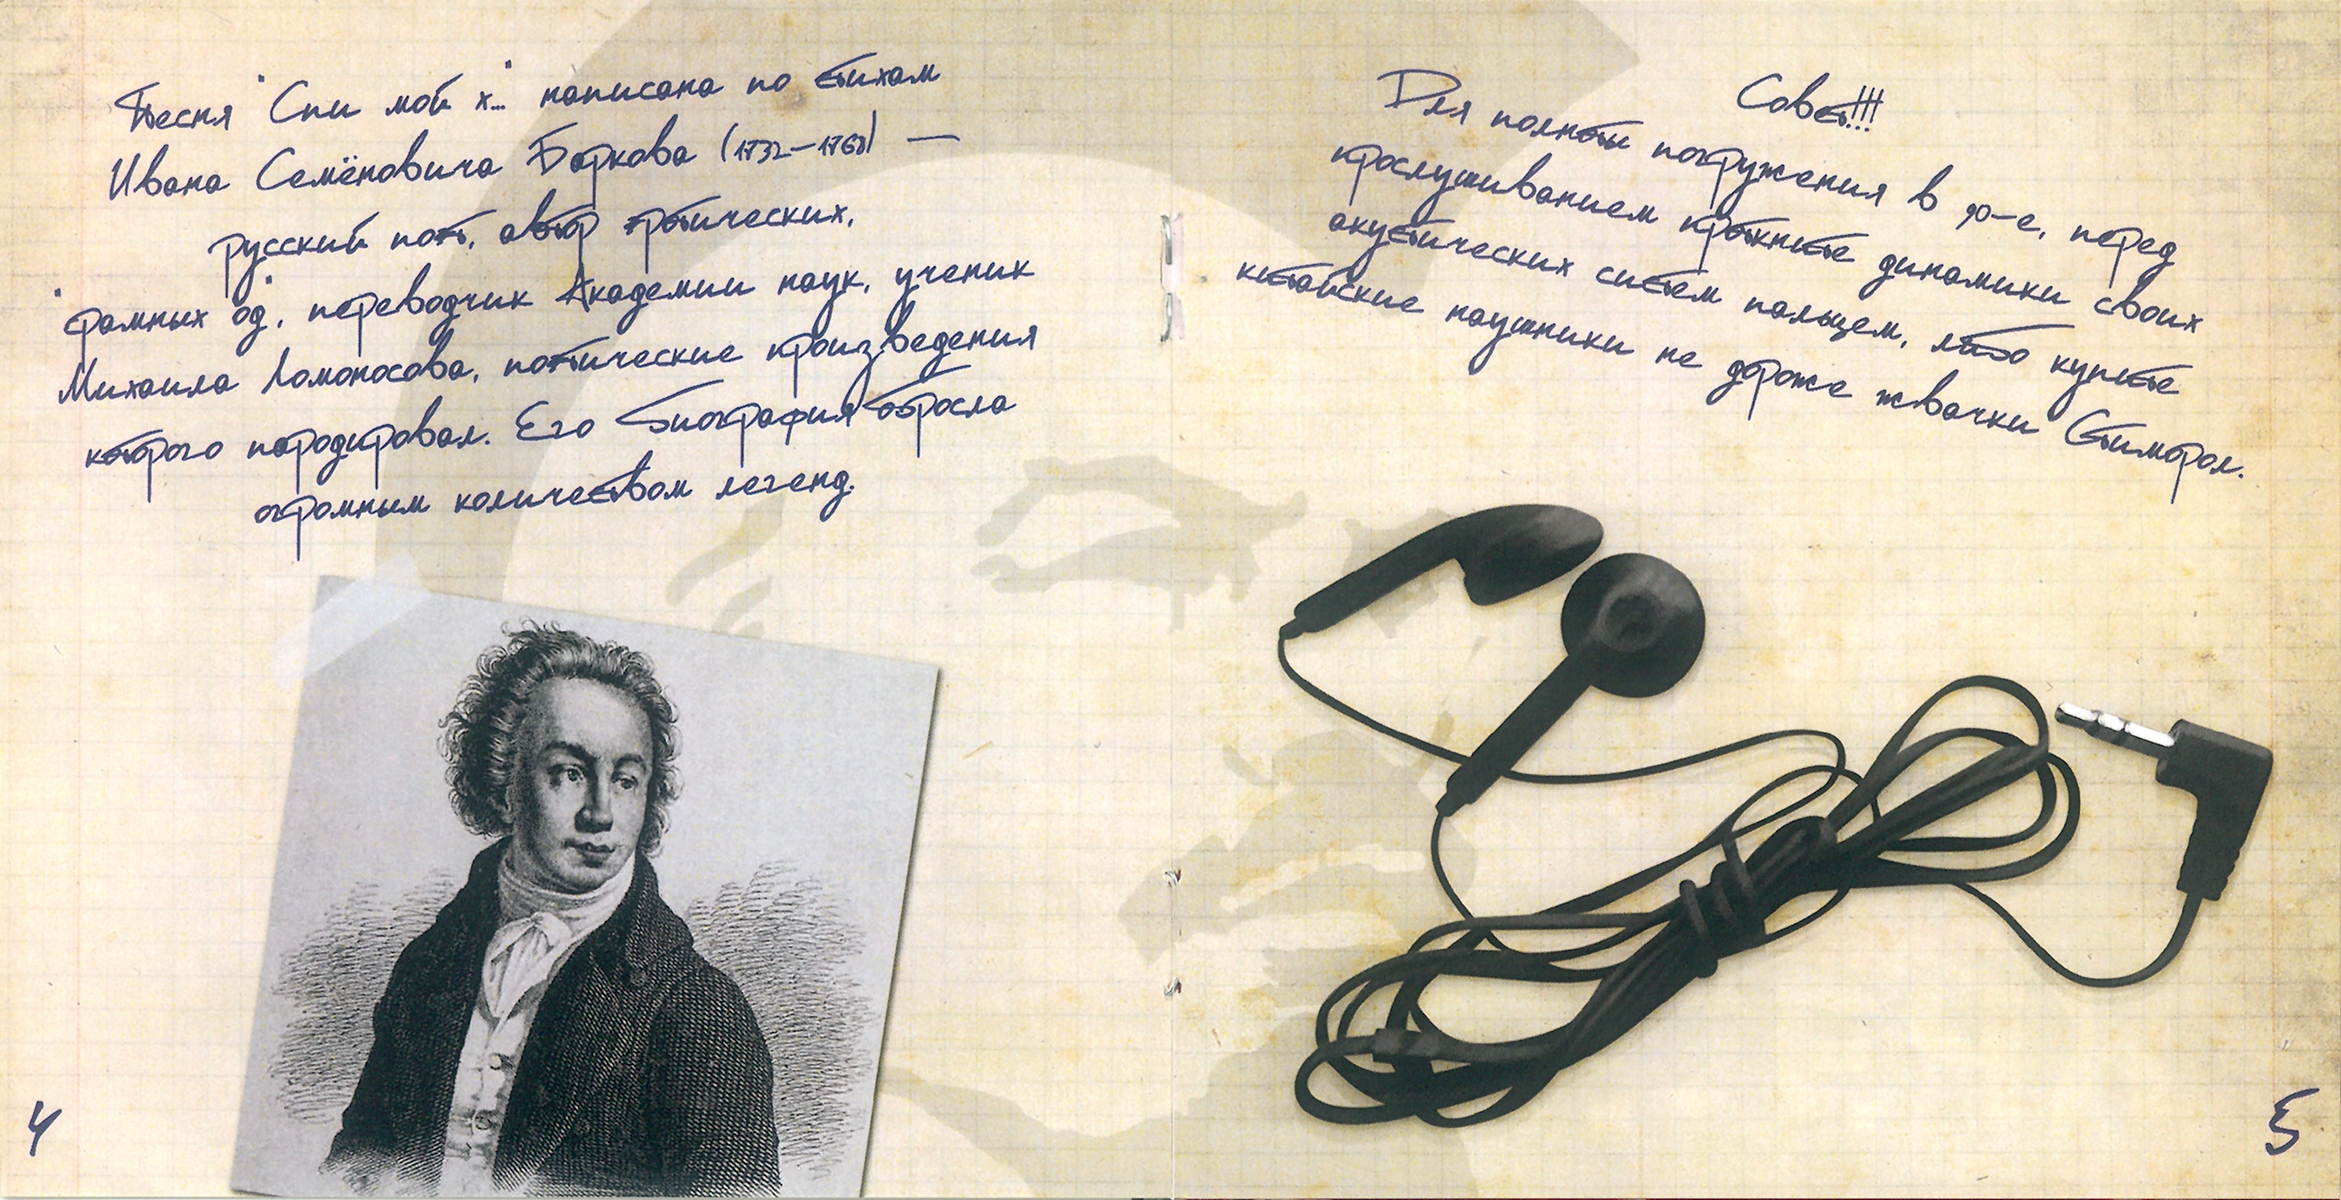 Песня "Спи мой х..." написана по стихам
Ивана Семёновича Баркова (1732–1768) —
русский поэт, автор эротических,
"срамных од", переводчик Академии наук, ученик
Михаила Ломоносова, поэтические произведения
которого пародировал. Его биография обросла
огромным количеством легенд.
4
Совет!!!
Для полноты погружения в 90-е, перед
прослушиванием проткните динамики своих
акустических систем пальцем, либо купите
китайские наушники не дороже жвачки Стиморол.
5